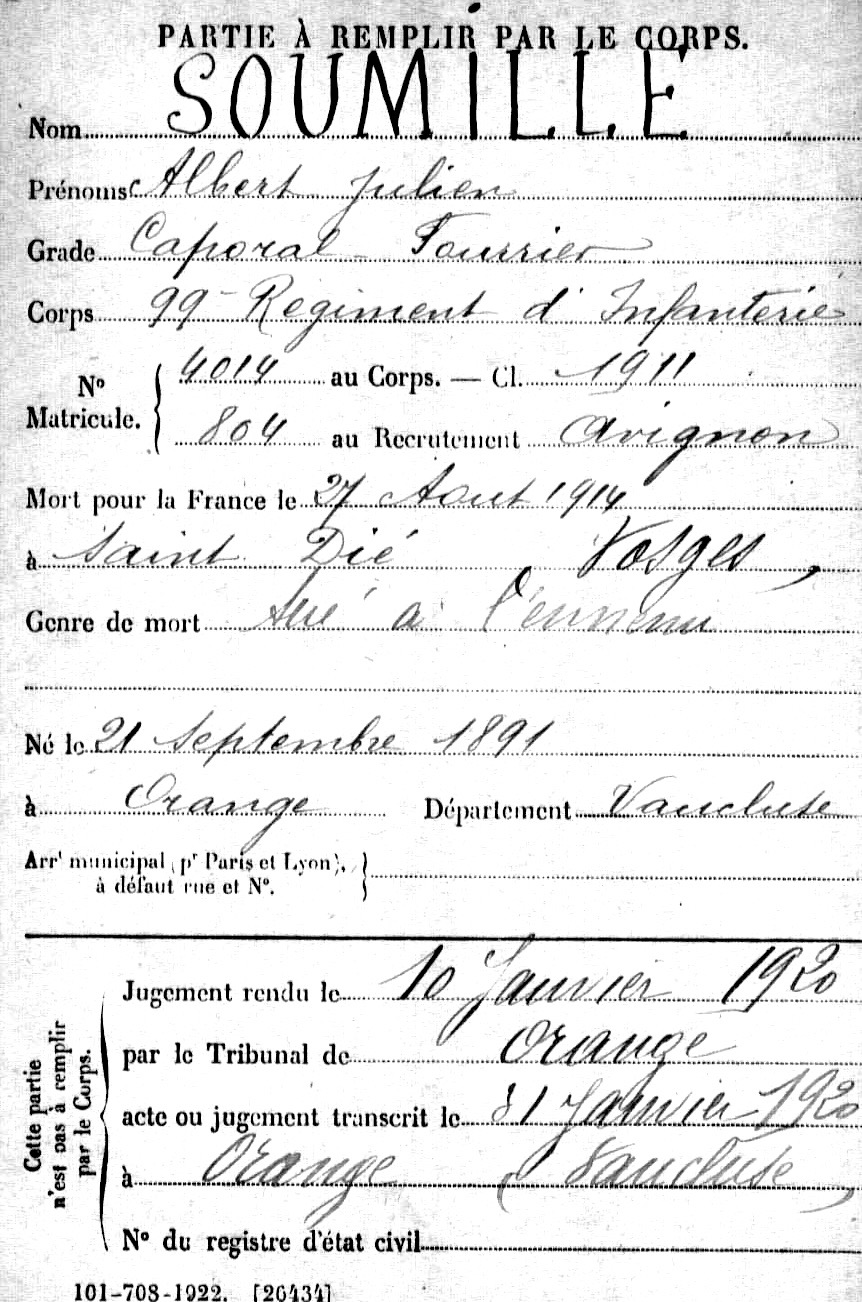 PARTIE À REMPLIR PAR LE CORPS.
Nom SOUMILLE
Prénoms Albert Julien
Grade Caporal-Fourrier
Corps 99e Régiment d'Infanterie
No Matricule. { 4014 au Corps. — Cl. 1911
804 au Recrutement Avignon
Mort pour la France le 27 Aout 1914
à Saint Dié Vosges,
Genre de mort tué à l'ennemi
Né le 21 Septembre 1891
à Orange Département Vaucluse
Arrt municipal (pr Paris et Lyon),
à défaut rue et No.
Cette partie n'est pas à remplir par le Corps.
Jugement rendu le 10 Janvier 1920
par le Tribunal de Orange
acte ou jugement transcrit le 31 Janvier 1920
à Orange (Vaucluse)
No du registre d'état civil
101-708-1922. [26434]